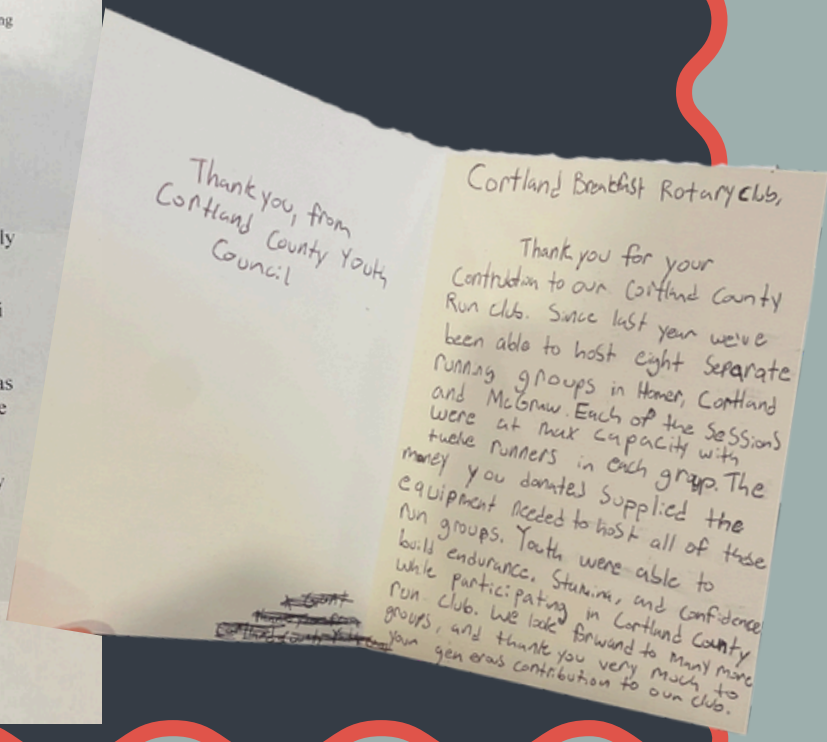 ng
ly
i
as
e
y
Thank you, from
Cortland County Youth
Council
Cortland Breakfast Rotary club,
Thank you for your
Contribution to our Cortland County
Run club. Since last year we've
been able to host eight separate
running groups in Homer, Cortland
and McGraw. Each of the sessions
were at max capacity with
twelve runners in each group. The
money you donated supplied the
equipment needed to host all of these
run groups. Youth were able to
build endurance, stamina, and confidence
while participating in Cortland County
run club. We look forward to many more
groups, and thank you very much to
your generous contribution to our club.